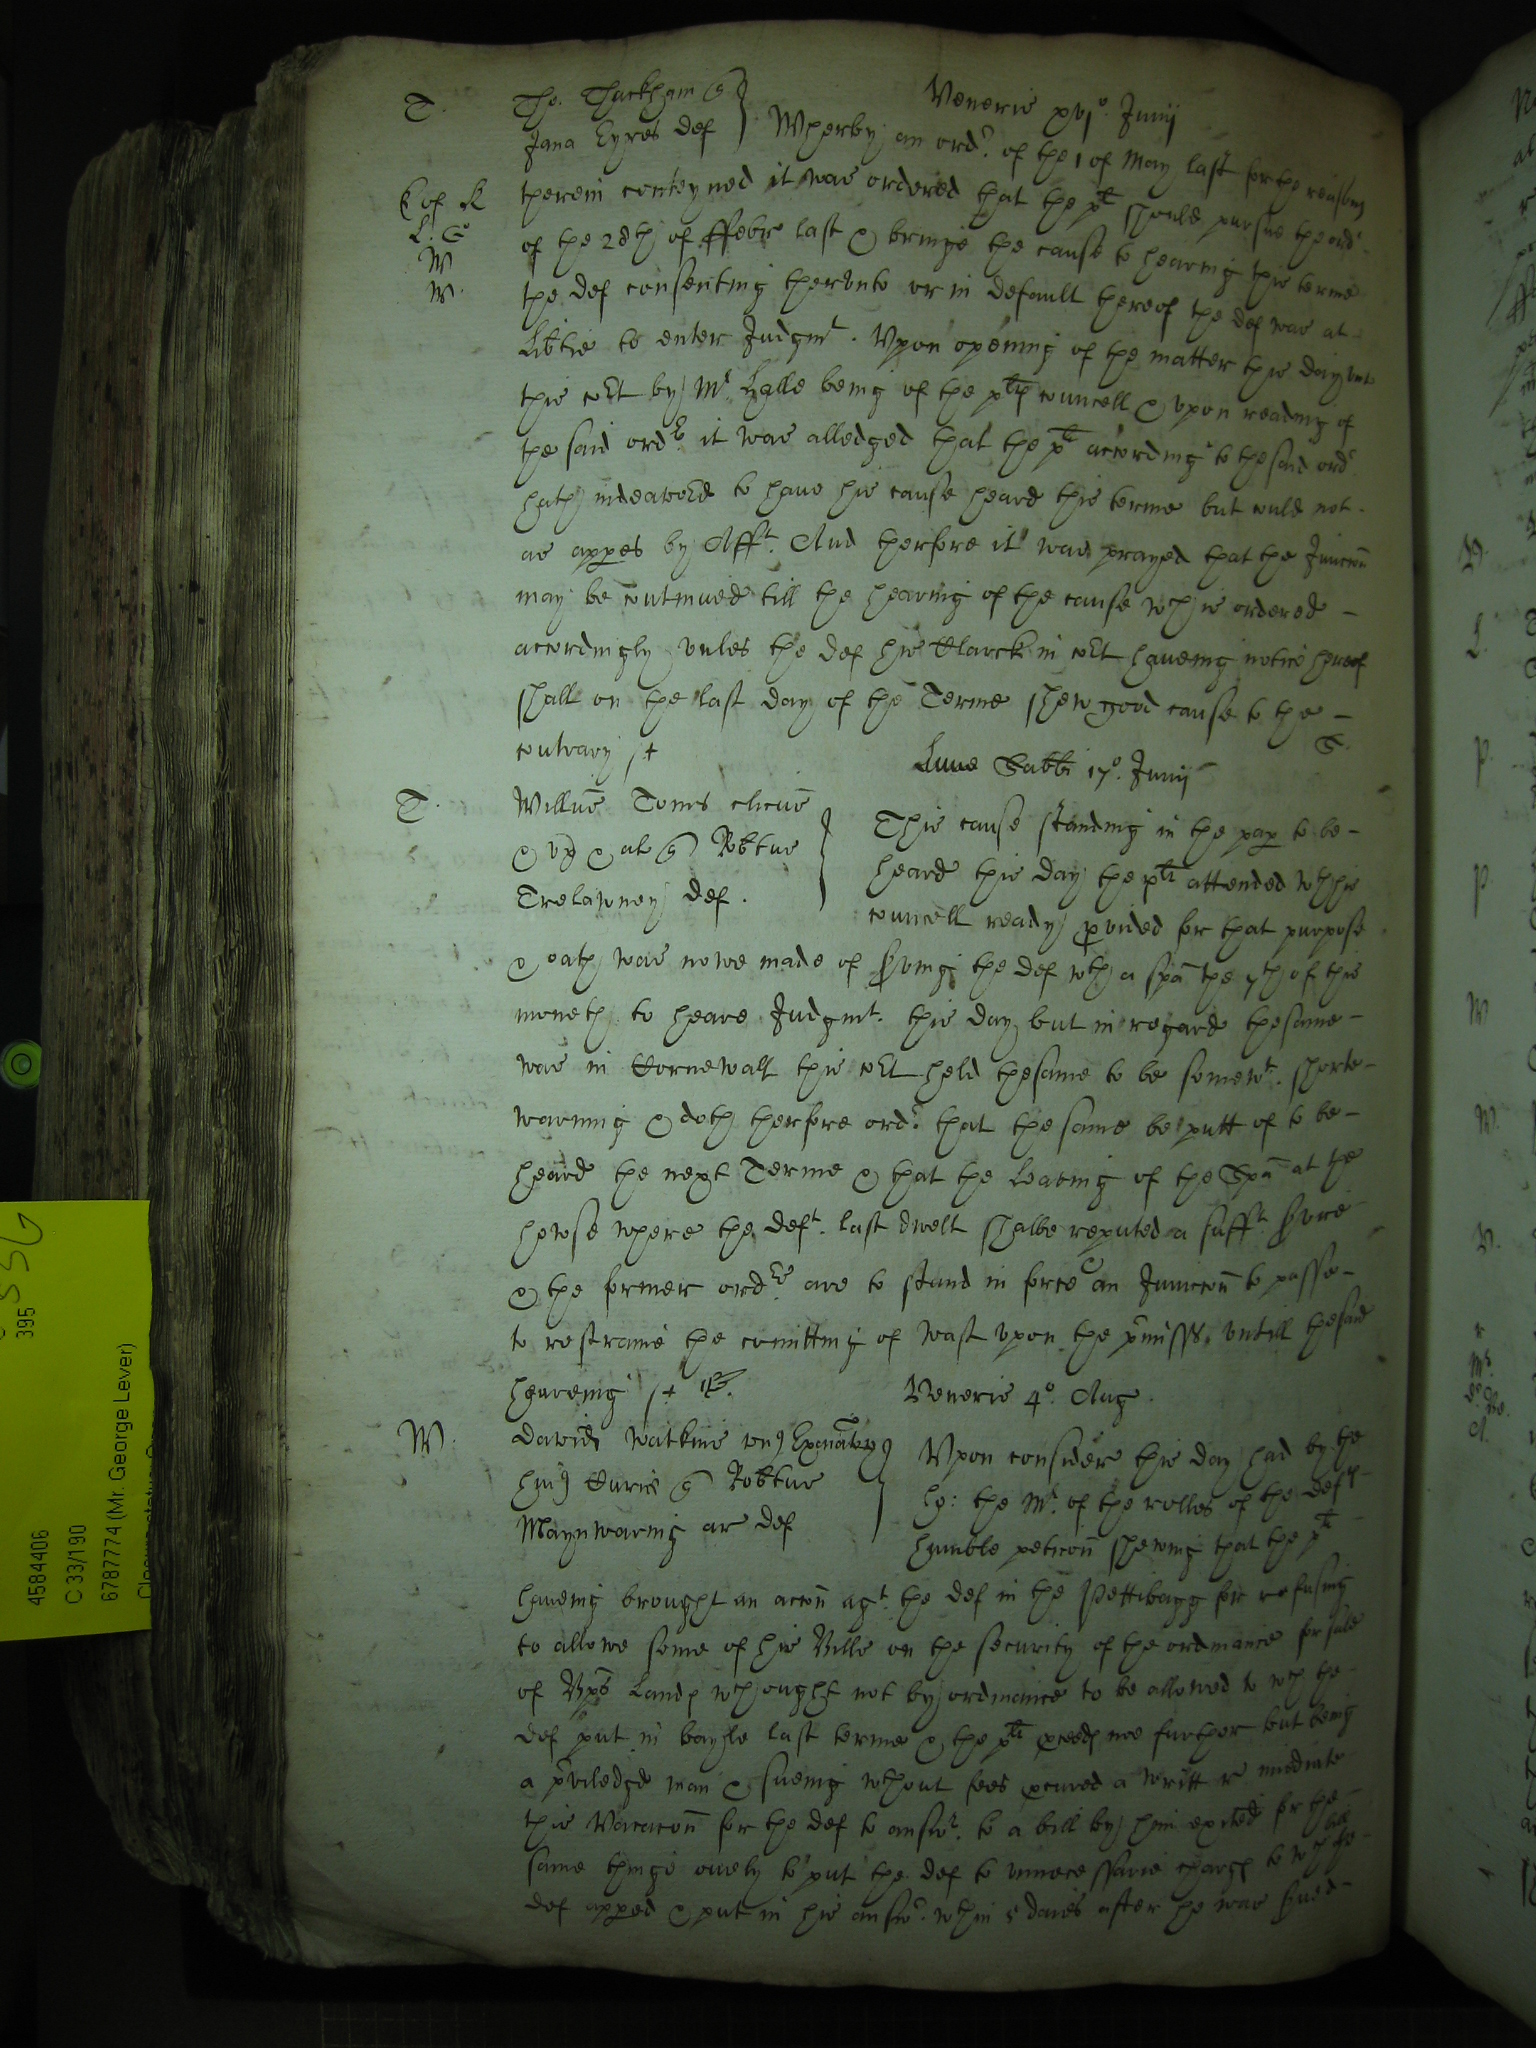 T.
Tho. Thackham q
Jana Eyres def
Veneris xvj° Junij
Wherby an ordr. of the 1 of May last for the reasons
K of K
therein conteyned it was ordered that the plt should pursue the ordr.
L. G
of the 28th of ffebr last & bringe the cause to hearing this terme
W
W.
the def consenting therunto or in default thereof the def was at
Libtie to enter Judgmt. Upon opening of the matter this day unto
this cort by Mr Halle being of the plts councell & upon reading of
the said ordr it was alledged that the plt according to the said ordr
hath indeavord to have his cause heard this terme but could not
as appes by Afft. And therfore it was prayed that the Junccon
may be continued till the hearing of the cause wch is ordered
accordingly unles the def his Clarck in cort haveing notice hereof
shall on the last day of the Terme shew good cause to the
contrary
S.
Lune Sabbi 17° Junij
T.
Willus Toms clicus
& ux & al q Robtus
Trelawney def.
This cause standing in the pap to be
heard this day the plt attended wth his
councell ready pvided for that purpose
& oath was nowe made of sving the def wth a spa the 7th of this
moneth to heare Judgmt. this day but in regard the same
was in Cornewall this cort held the same to be somewt. shorte
warning & doth therfore ordr. that the same be putt of to be
heard the next Terme & that the Leaving of the Spa at the
howse where the deft. last dwelt shalbe reputed a sufft svice
& the former ordrs. are to stand in force an Junccon to passe
to restraine the comitting of wast upon the pmisss. untill the said
heareing
Veneris 4° Aug.
W.
David Watkins un Exonator
huj Curie q Robtus
Maynwaring ar def
Upon consider this day had by the
ho: the Mr. of the rolles of the defts
humble peticon shewing that the plt
haveing brought an accon agt. the def in the Pettibagg for refusing
to allowe some of his Bills on the security of the ordinance for sale
of Bpps Lands wch ought not by ordinance to be allowed to wch the
def put in bayle last terme & the plt pceeds noe further but being
a priviledgd man & sueing wthout fees pcured a writt r imediate
this Vacacon for the def to answr. to a bill by him exited for the
same things onely to put the def to unnecessarie charge to wch bill the
def apped & put in his answr. wthin 5 daies after he was sved
395
4584406
C 33/190
6787774 (Mr. George Lever)